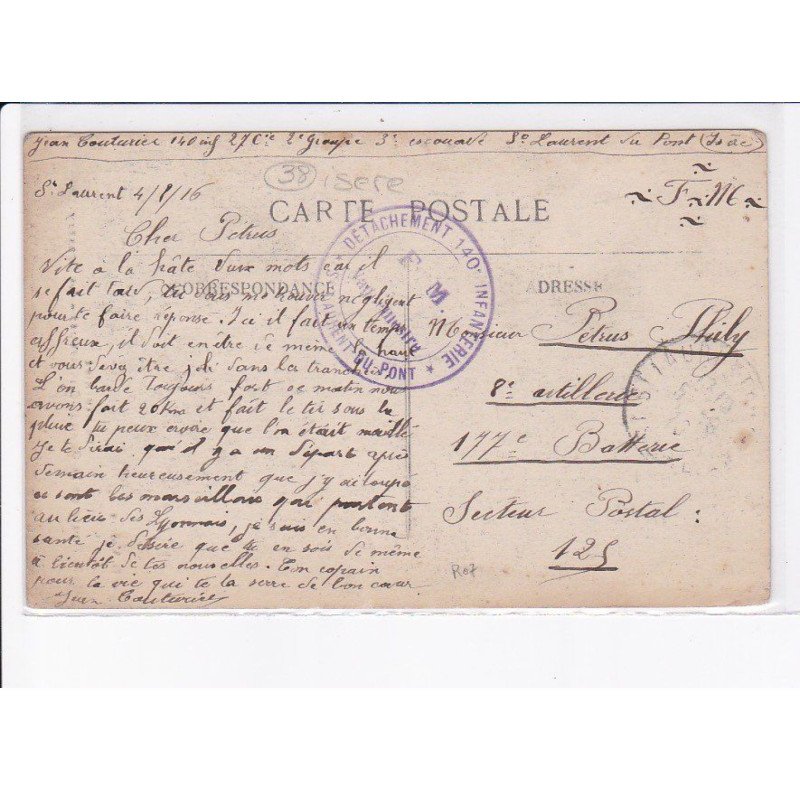 Jean Couturier 140 inf 27 Cie 2e Groupe 3e escouade St Laurent du Pont (Isère)
38 isere
St Laurent 4/ /16
F. M.
CARTE POSTALE
Cher Pétrus
Vite à la hâte deux mots car il
CORRESPONDANCE
ADRESSE
se fait tard, tu vas me trouver négligent
pour te faire réponse. Ici il fait un temps
affreux, il doit en être de même là haut
et vous devez être joli dans la tranchée
L'on barde toujours fort ce matin nous
avons fait 20 Km et fait le tir sous la
pluie tu peux croire que l'on était mouillé
Je te dirai qu'il y a un départ après
demain heureusement que j'y ai loupé
ce sont les marseillais qui partent
au lieu des Lyonnais, je suis en bonne
santé je désire que tu en sois de même
à bientôt de tes nouvelles. Ton copain
pour la vie qui te la serre de bon cœur
Jean Couturier
DÉTACHEMENT 140e INFANTERIE
F. M.
ST LAURENT-DU-PONT
Monsieur Pétrus
8e artillerie
177e Batterie
Secteur Postal :
125
R07